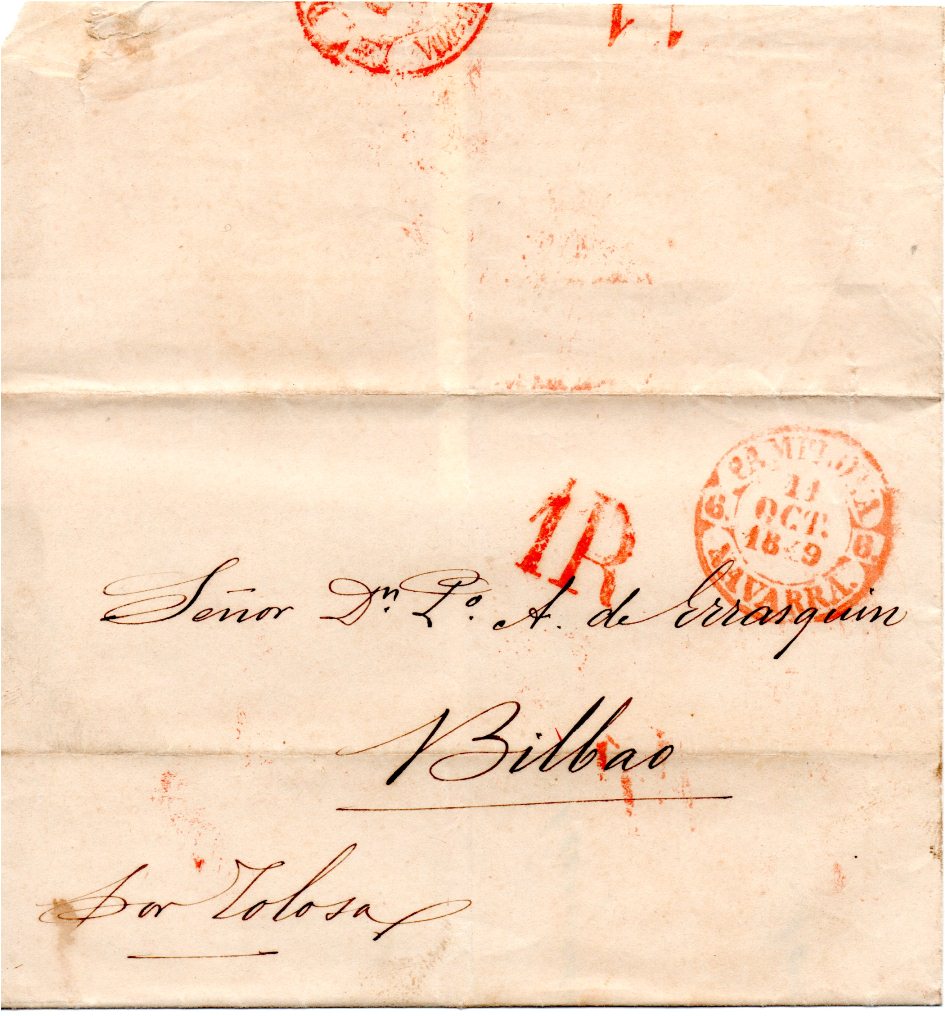 1R
PAMPLONA
11
OCT.
1849
8 8
NAVARRA.
Señor Dⁿ P.º A. de Errasquin
Bilbao
por Tolosa